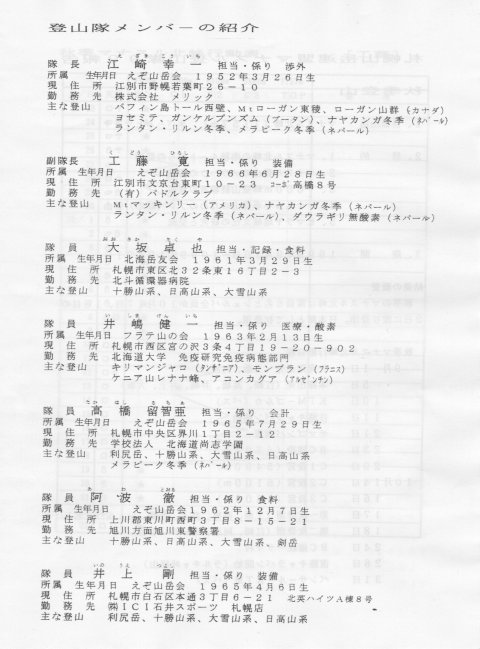 登山隊メンバーの紹介
えざきこういち
隊長 江崎幸一 担当・係り 渉外
所属 生年月日 えぞ山岳会 1952年3月26日生
現住所 江別市野幌若葉町26-10
勤務先 株式会社 メリック
主な登山 バフィン島トール西壁、Mtローガン東稜、ローガン山群(カナダ)
ヨセミテ、ガンケルプンズム(ブータン)、ナヤカンガ冬季(ネパール)
ランタン・リルン冬季、メラピーク冬季(ネパール)
くどうひろし
副隊長 工藤寛 担当・係り 装備
所属 生年月日 えぞ山岳会 1966年6月28日生
現住所 江別市文京台東町10-23 コーポ高橋8号
勤務先 (有)パドルクラブ
主な登山 Mtマッキンリー(アメリカ)、ナヤカンガ冬季(ネパール)
ランタン・リルン冬季(ネパール)、ダウラギリ無酸素(ネパール)
おおさかたくや
隊員 大坂卓也 担当・記録・食料
所属 生年月日 北海岳友会 1961年3月29日生
現住所 札幌市東区北32条東16丁目2-3
勤務先 北斗循環器病院
主な登山 十勝山系、日高山系、大雪山系
いしまけんいち
隊員 井嶋健一 担当・係り 医療・酸素
所属 生年月日 フラテ山の会 1963年2月13日生
現住所 札幌市西区宮の沢3条4丁目19-20-902
勤務先 北海道大学 免疫研究免疫病態部門
主な登山 キリマンジャコ(タンザニア)、モンブラン(フランス)
ケニア山レナナ峰、アコンカグア(アルゼンチン)
たかはしるちあ
隊員 高橋留智亜 担当・係り 会計
所属 生年月日 えぞ山岳会 1965年7月29日生
現住所 札幌市中央区界川1丁目2-12
勤務先 学校法人 北海道尚志学園
主な登山 利尻岳、十勝山系、大雪山系、日高山系
メラピーク冬季(ネパール)
あわとおる
隊員 阿波徹 担当・係り 食料
所属 生年月日 えぞ山岳会1962年12月7日生
現住所 上川郡東川町西町3丁目8-15-21
勤務先 旭川方面旭川東警察署
主な登山 十勝山系、日高山系、大雪山系、剣岳
いのうえつよし
隊員 井上剛 担当・係り 装備
所属 生年月日 えぞ山岳会 1965年4月6日生
現住所 札幌市白石区本通3丁目6-21 北英ハイツA棟8号
勤務先 ㈱ICI石井スポーツ 札幌店
主な登山 利尻岳、十勝山系、大雪山系、日高山系